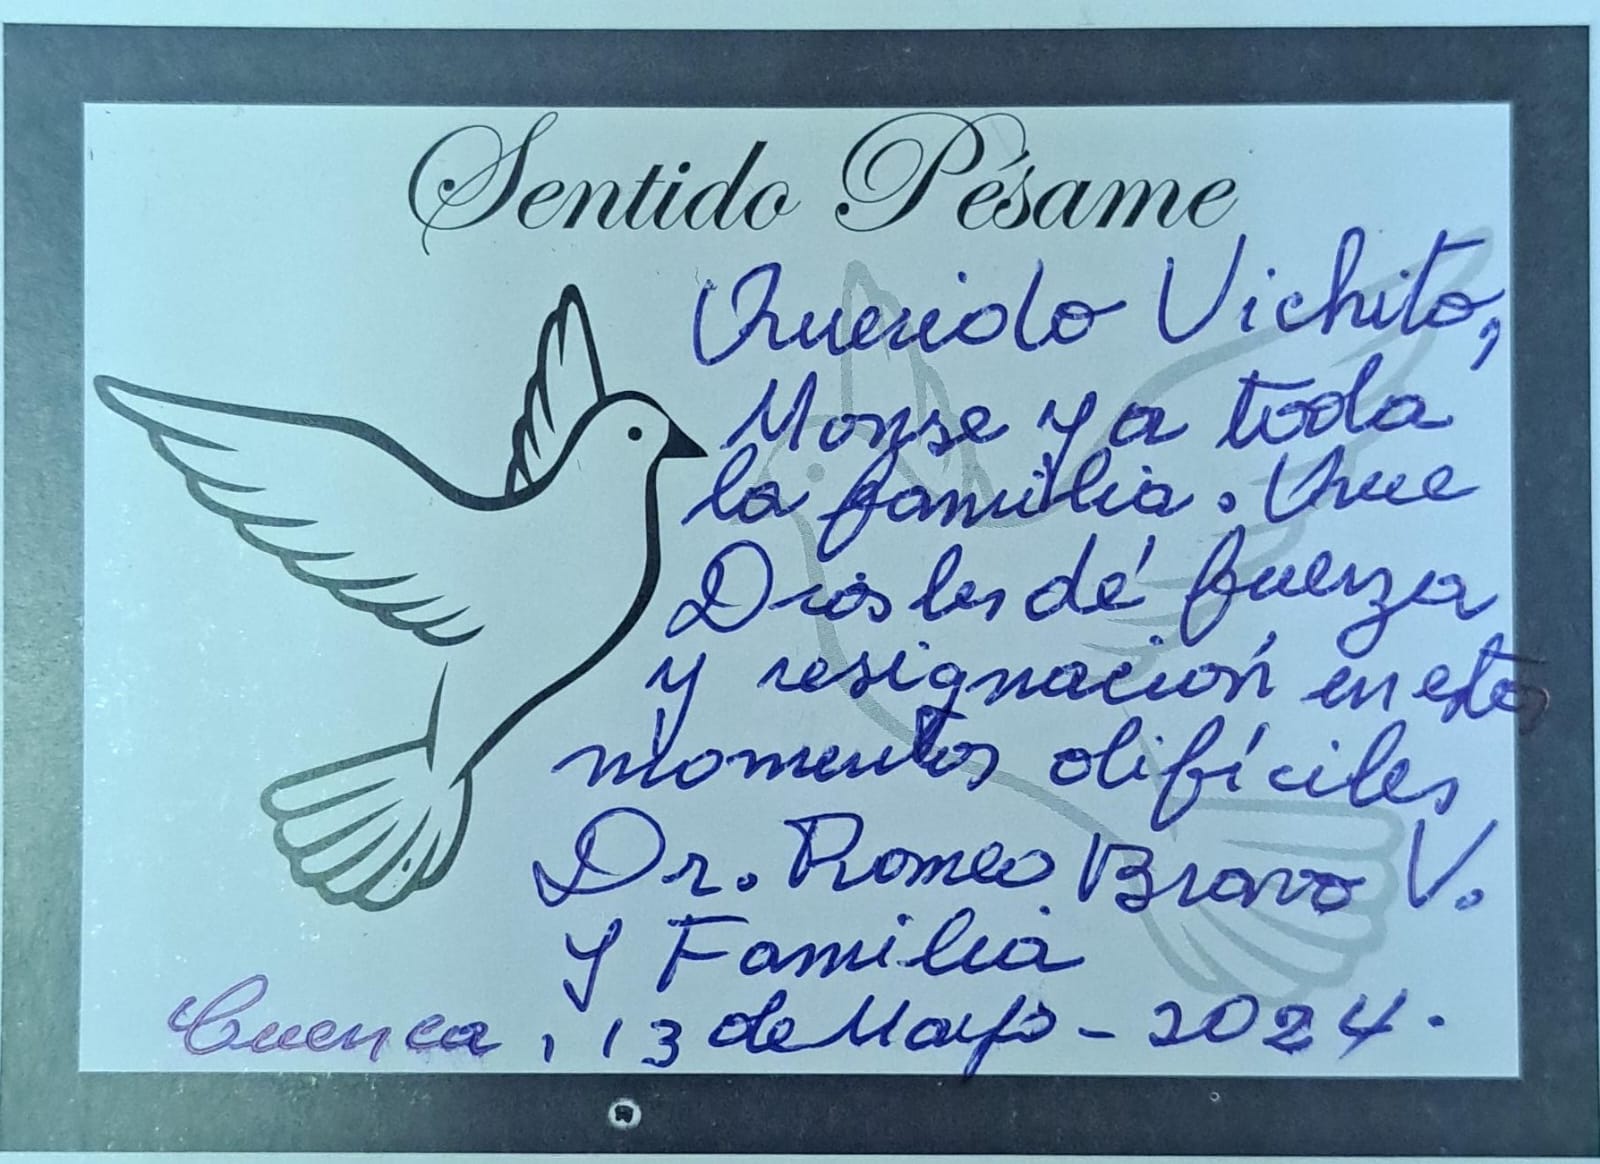 Sentido Pésame
Querido Vichito,
Monse y a toda
la familia. Que
Dios les dé fuerza
y resignación en estos
momentos difíciles
Dr. Romeo Bravo V.
y Familia
Cuenca, 13 de Mayo - 2024.